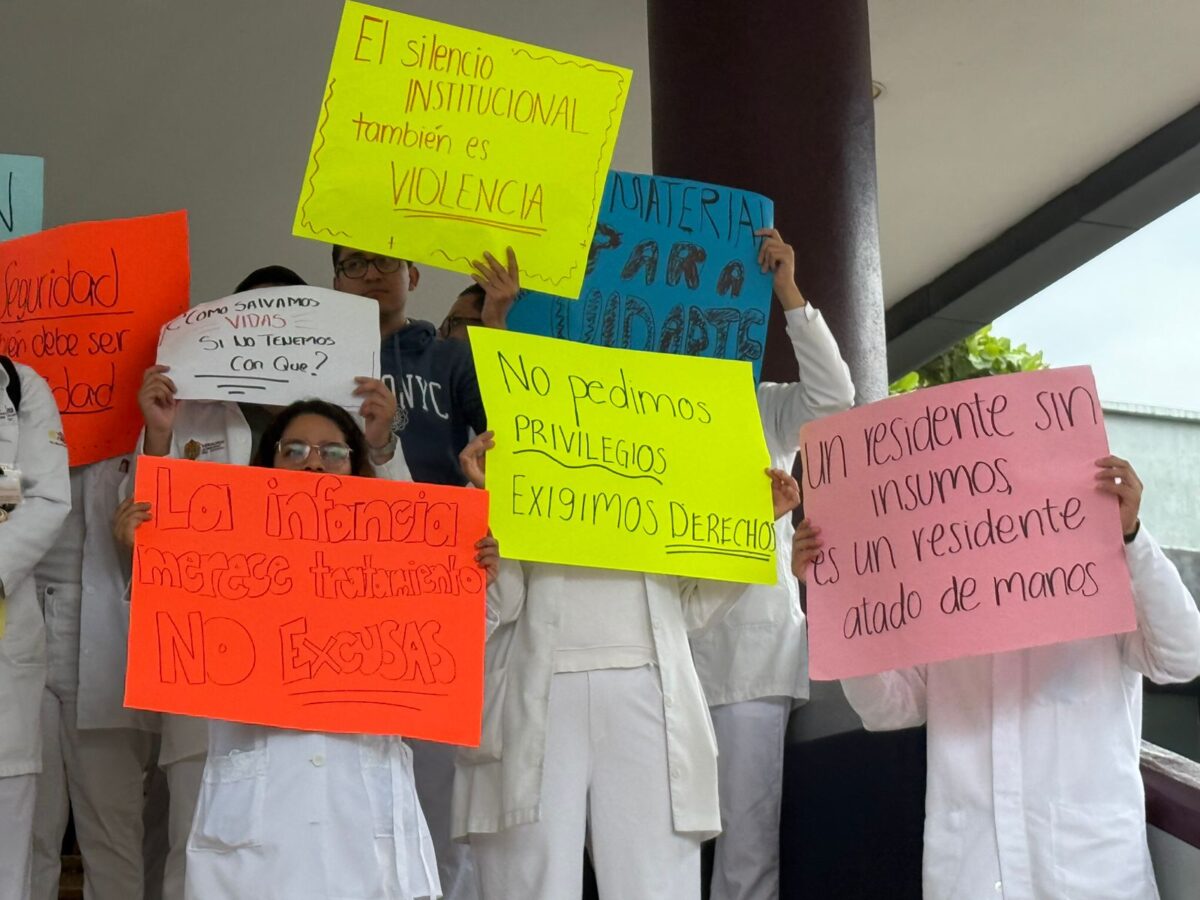 El silencio
INSTITUCIONAL
también es
VIOLENCIA
N
MATERIAL
PARA
Seguridad
debe ser
¿CÓMO SALVAMOS
VIDAS
SI NO TENEMOS
Con Que?
NYC
No pedimos
PRIVILEGIOS
EXIGIMOS DERECHOS
Un residente sin
insumos,
es un residente
atado de manos
La infancia
merece tratamiento
NO EXCUSAS